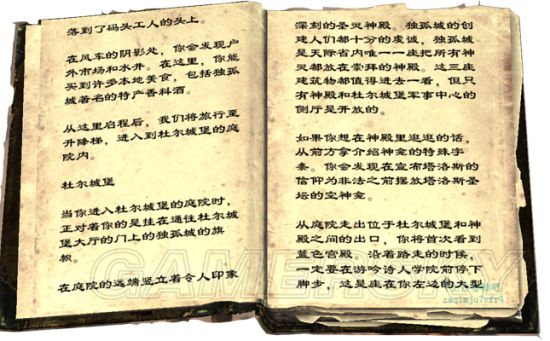 落到了码头工人的头上。
在风车的阴影处,你会发现户
外市场和水井。在这里,你能
买到许多本地美食,包括独孤
城著名的特产香料酒。
从这里启程后,我们将旅行至
升降梯,进入到杜尔城堡的庭
院内。
杜尔城堡
当你进入杜尔城堡的庭院时,
正对着你的是挂在通往杜尔城
堡大厅的门上的独孤城的旗
帜。
在庭院的远端竖立着令人印象
深刻的圣灵神殿。独孤城的创
建人们都十分的虔诚,独孤城
是天际省内唯一一座把所有神
灵都放在崇拜的神殿。这三座
建筑物都值得进去一看,但只
有神殿和杜尔城堡军事中心的
侧厅是开放的。
如果你想在神殿里逛逛的话,
从前方拿介绍神龛的特殊字
条。你会发现在宣布塔洛斯的
信仰为非法之前摆放塔洛斯圣
坛的空神龛。
从庭院走出位于杜尔城堡和神
殿之间的出口,你将首次看到
蓝色宫殿 沿着路走的时候,
一定要在游吟诗人学院前停下
脚步,这是座在你左边的大型
GAMERSKY
zaqimju7vfr4